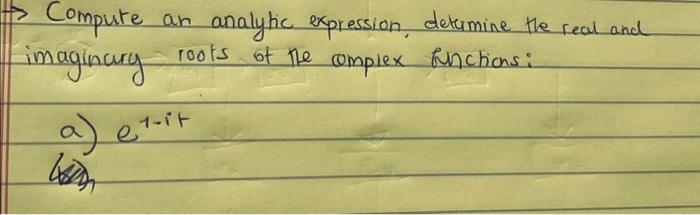 → Compute an analytic expression, determine the real and
imaginary roots of the complex functions:
a) e^{1-it}